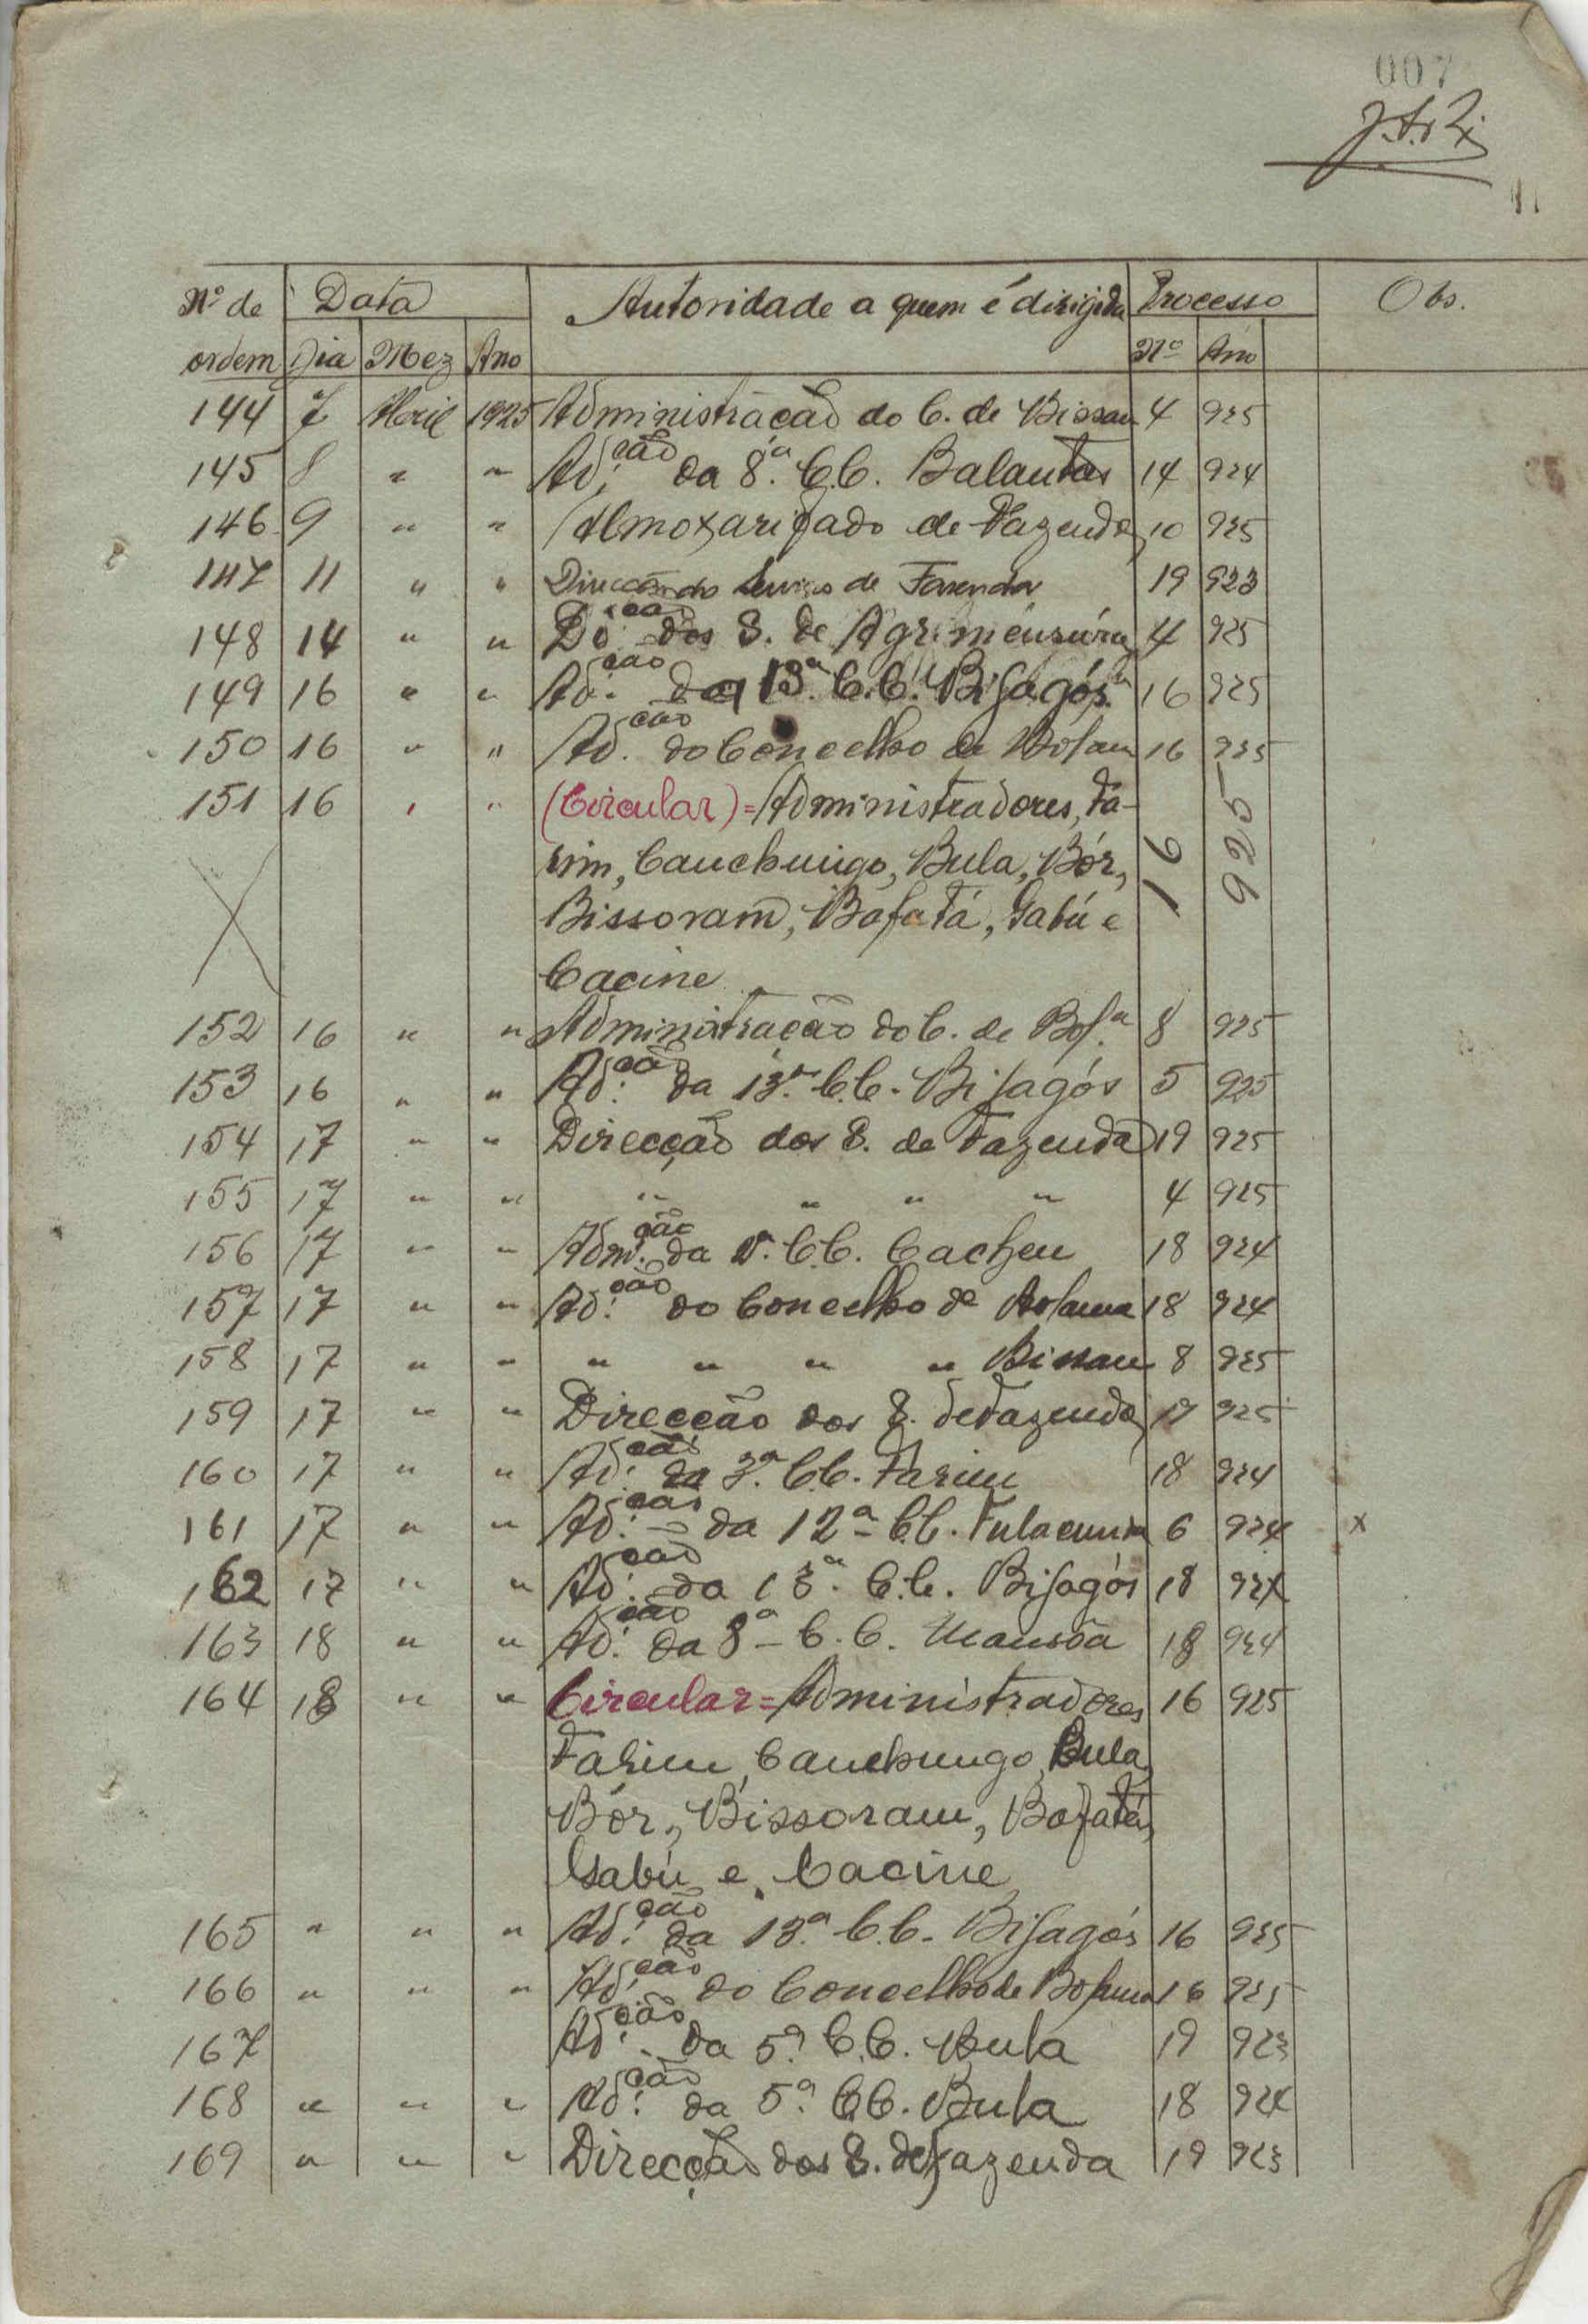 007
Nº de Data Autoridade a quem é dirigida Processo Obs.
ordem Dia Mez Ano Nº Ano
144 7 Abril 1925 Administração do C. de Bissau 4 925
145 8 " " Ad.ção da 8.ª C.C. Balantas 14 924
146 9 " " Almoxarifado de Fazenda 10 925
147 11 " " Direcção dos Serviços de Fazenda 19 923
148 14 " " Dô.ção dos S. de Agrimensura 4 925
149 16 " " Ad.ção da 13ª C.C. Bijagós 16 925
150 16 " " Ad.ção do Concelho de Bolama 16 925
151 16 " " (Circular) = Administradores, Fa-
rim, Canchungo, Bula, Bór, 16 925
Bissoram, Bafatá, Gabú e
Cacine
152 16 " " Administração do C. de Bol.ª 8 925
153 16 " " Ad.ção da 13.ª C.C. Bijagós 5 925
154 17 " " Direcção dos S. de Fazenda 19 925
155 17 " " " " " " 4 925
156 17 " " Adm.ção da C.C. Cacheu 18 924
157 17 " " Ad.ção do Concelho de Bolama 18 924
158 17 " " " " " " Bissau 8 925
159 17 " " Direcção dos S. de Fazenda 19 925
160 17 " " Ad.ção da 3.ª C.C. Farim 18 924
161 17 " " Ad.ção da 12ª C.C. Fulacunda 6 924 x
162 17 " " Ad.ção da 13ª C.C. Bijagós 18 924
163 18 " " Ad.ção da 8ª C.C. Mansôa 18 924
164 18 " " Circular = Administradores 16 925
Farim, Canchungo, Bula,
Bór, Bissoram, Bafatá,
Gabú e Cacine
165 " " " Ad.ção da 13.ª C.C. Bijagós 16 925
166 " " " Ad.ção do Concelho de Bolama 16 925
167 Ad.ção da 5.ª C.C. Bula 19 923
168 " " " Ad.ção da 5.ª C.C. Bula 18 924
169 " " " Direcção dos S. de Fazenda 19 923